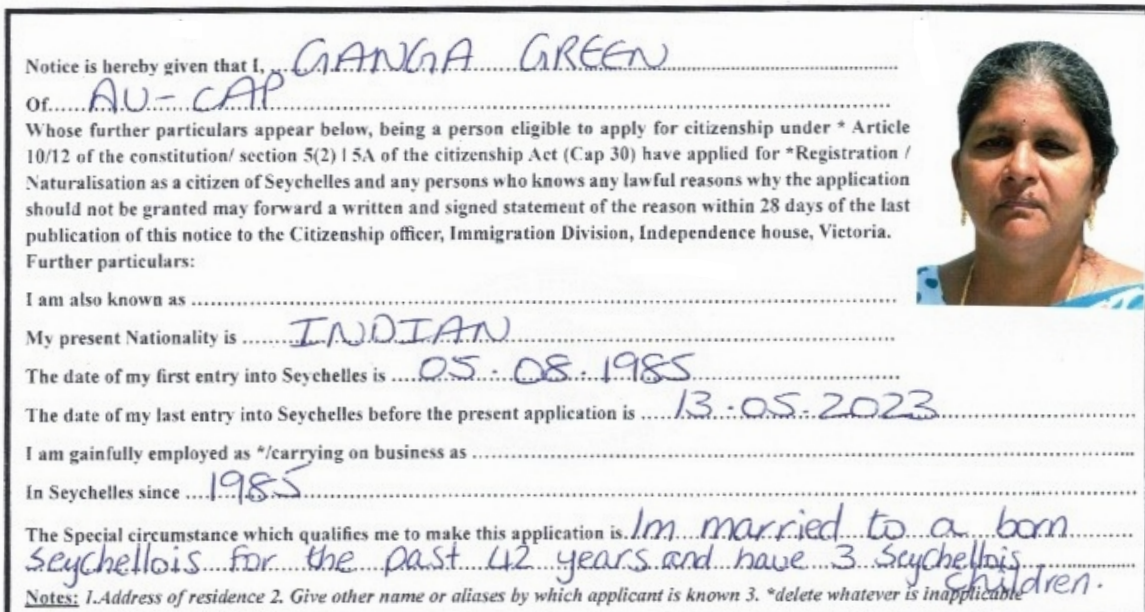 Notice is hereby given that I, GANGA GREEN
Of AU-CAP
Whose further particulars appear below, being a person eligible to apply for citizenship under * Article
10/12 of the constitution/ section 5(2) | 5A of the citizenship Act (Cap 30) have applied for *Registration /
Naturalisation as a citizen of Seychelles and any persons who knows any lawful reasons why the application
should not be granted may forward a written and signed statement of the reason within 28 days of the last
publication of this notice to the Citizenship officer, Immigration Division, Independence house, Victoria.
Further particulars:
I am also known as
My present Nationality is INDIAN
The date of my first entry into Seychelles is 05.08.1985
The date of my last entry into Seychelles before the present application is 13.05.2023
I am gainfully employed as */carrying on business as
In Seychelles since 1985
The Special circumstance which qualifies me to make this application is Im married to a born
Seychellois for the past 42 years and have 3 Seychellois
children.
Notes: 1.Address of residence 2. Give other name or aliases by which applicant is known 3. *delete whatever is inapplicable